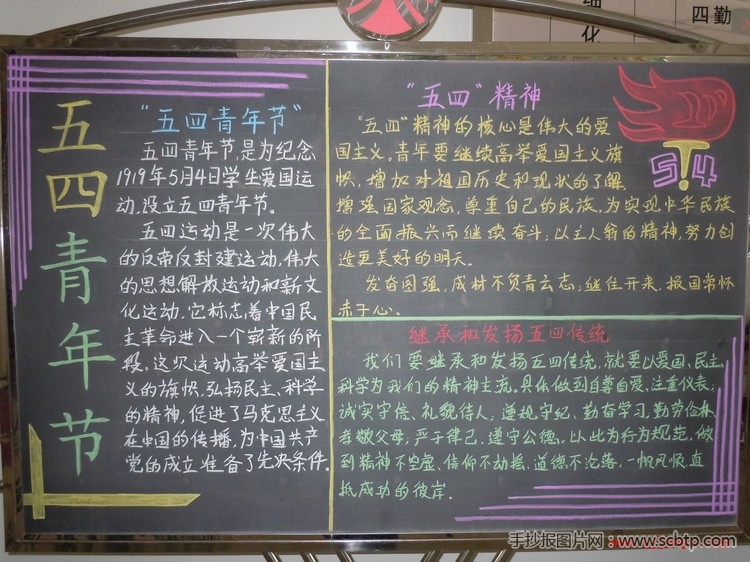 细化
四勤
五四青年节
"五四青年节"
五四青年节,是为纪念
1919年5月4日学生爱国运
动,设立五四青年节。
五四运动是一次伟大
的反帝反封建运动,伟大
的思想解放运动和新文
化运动,它标志着中国民
主革命进入一个崭新的阶
段。这次运动高举爱国主
义的旗帜,弘扬民主、科学
的精神,促进了马克思主义
在中国的传播,为中国共产
党的成立准备了先决条件.
"五四"精神
"五四"精神的核心是伟大的爱
国主义。青年要继续高举爱国主义旗
帜,增加对祖国历史和现状的了解,
增强国家观念,尊重自己的民族,为实现中华民族
的全面振兴而继续奋斗;以主人翁的精神,努力创
造更美好的明天。
发奋图强,成材不负青云志;继往开来,报国常怀
赤子心.
5.4
继承和发扬五四传统
我们要继承和发扬五四传统,就要以爱国、民主、
科学为我们的精神主流。具体做到自尊自爱、注重仪表;
诚实守信、礼貌待人;遵规守纪、勤奋学习,勤劳俭朴
孝敬父母;严于律己、遵守公德。以此为行为规范,做
到精神不空虚、信仰不动摇、道德不沦落,一帆风顺,直
抵成功的彼岸.
手抄报图片网:www.scbtp.com